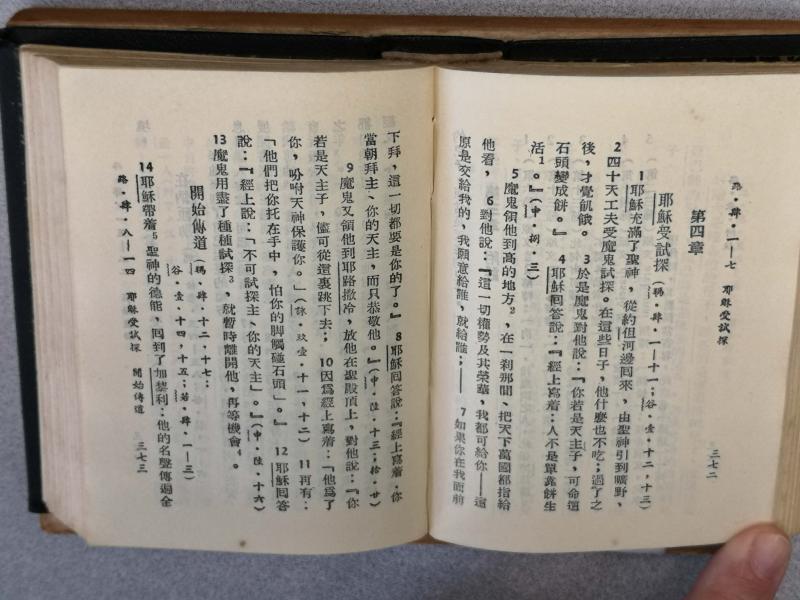 路・肆・一—七　耶穌受試探　三七二
第四章
耶穌受試探（瑪・肆・一—十一；谷・壹・十二，十三）
1耶穌充滿了聖神，從約但河邊回來，由聖神引到曠野，
2四十天工夫受魔鬼試探。在這些日子，他什麼也不吃；過了之
後，才覺飢餓。　3於是魔鬼對他說：『你若是天主子，可命這
石頭變成餅。』　4耶穌回答說：『經上寫着：人不是單靠餅生
活1。』（申・捌・三）
5魔鬼領他到高的地方2，在一剎那間，把天下萬國都指給
他看，　6對他說：『這一切權勢及其榮華，我都可給你——這
原是交給我的，我願意給誰，就給誰；——　7如果你在我面前
下拜，這一切都要是你的了。』　8耶穌回答說：『經上寫着，你
當朝拜主、你的天主，而只恭敬他。』（申・陸・十三；拾・廿）
9魔鬼又領他到耶路撒冷，放他在聖殿頂上，對他說：『你
若是天主子，儘可從這裏跳下去；　10因爲經上寫着：「他爲了
你，吩咐天神保護你。」（詠・玖壹・十一，十二）　11再有：
「他們把你托在手中，怕你的脚觸碰石頭」。』　12耶穌回答
說：『經上說：「不可試探主、你的天主」。』（申・陸・十六）
13魔鬼用盡了種種試探3，就暫時離開他，再等機會4。
開始傳道（瑪・肆・十二，十七；
谷・壹・十四，十五；若・肆・一—三）
14耶穌帶着5聖神的德能，回到了加黎利：他的名聲傳遍全
路・肆・八—一四　耶穌受試探　開始傳道　三七三